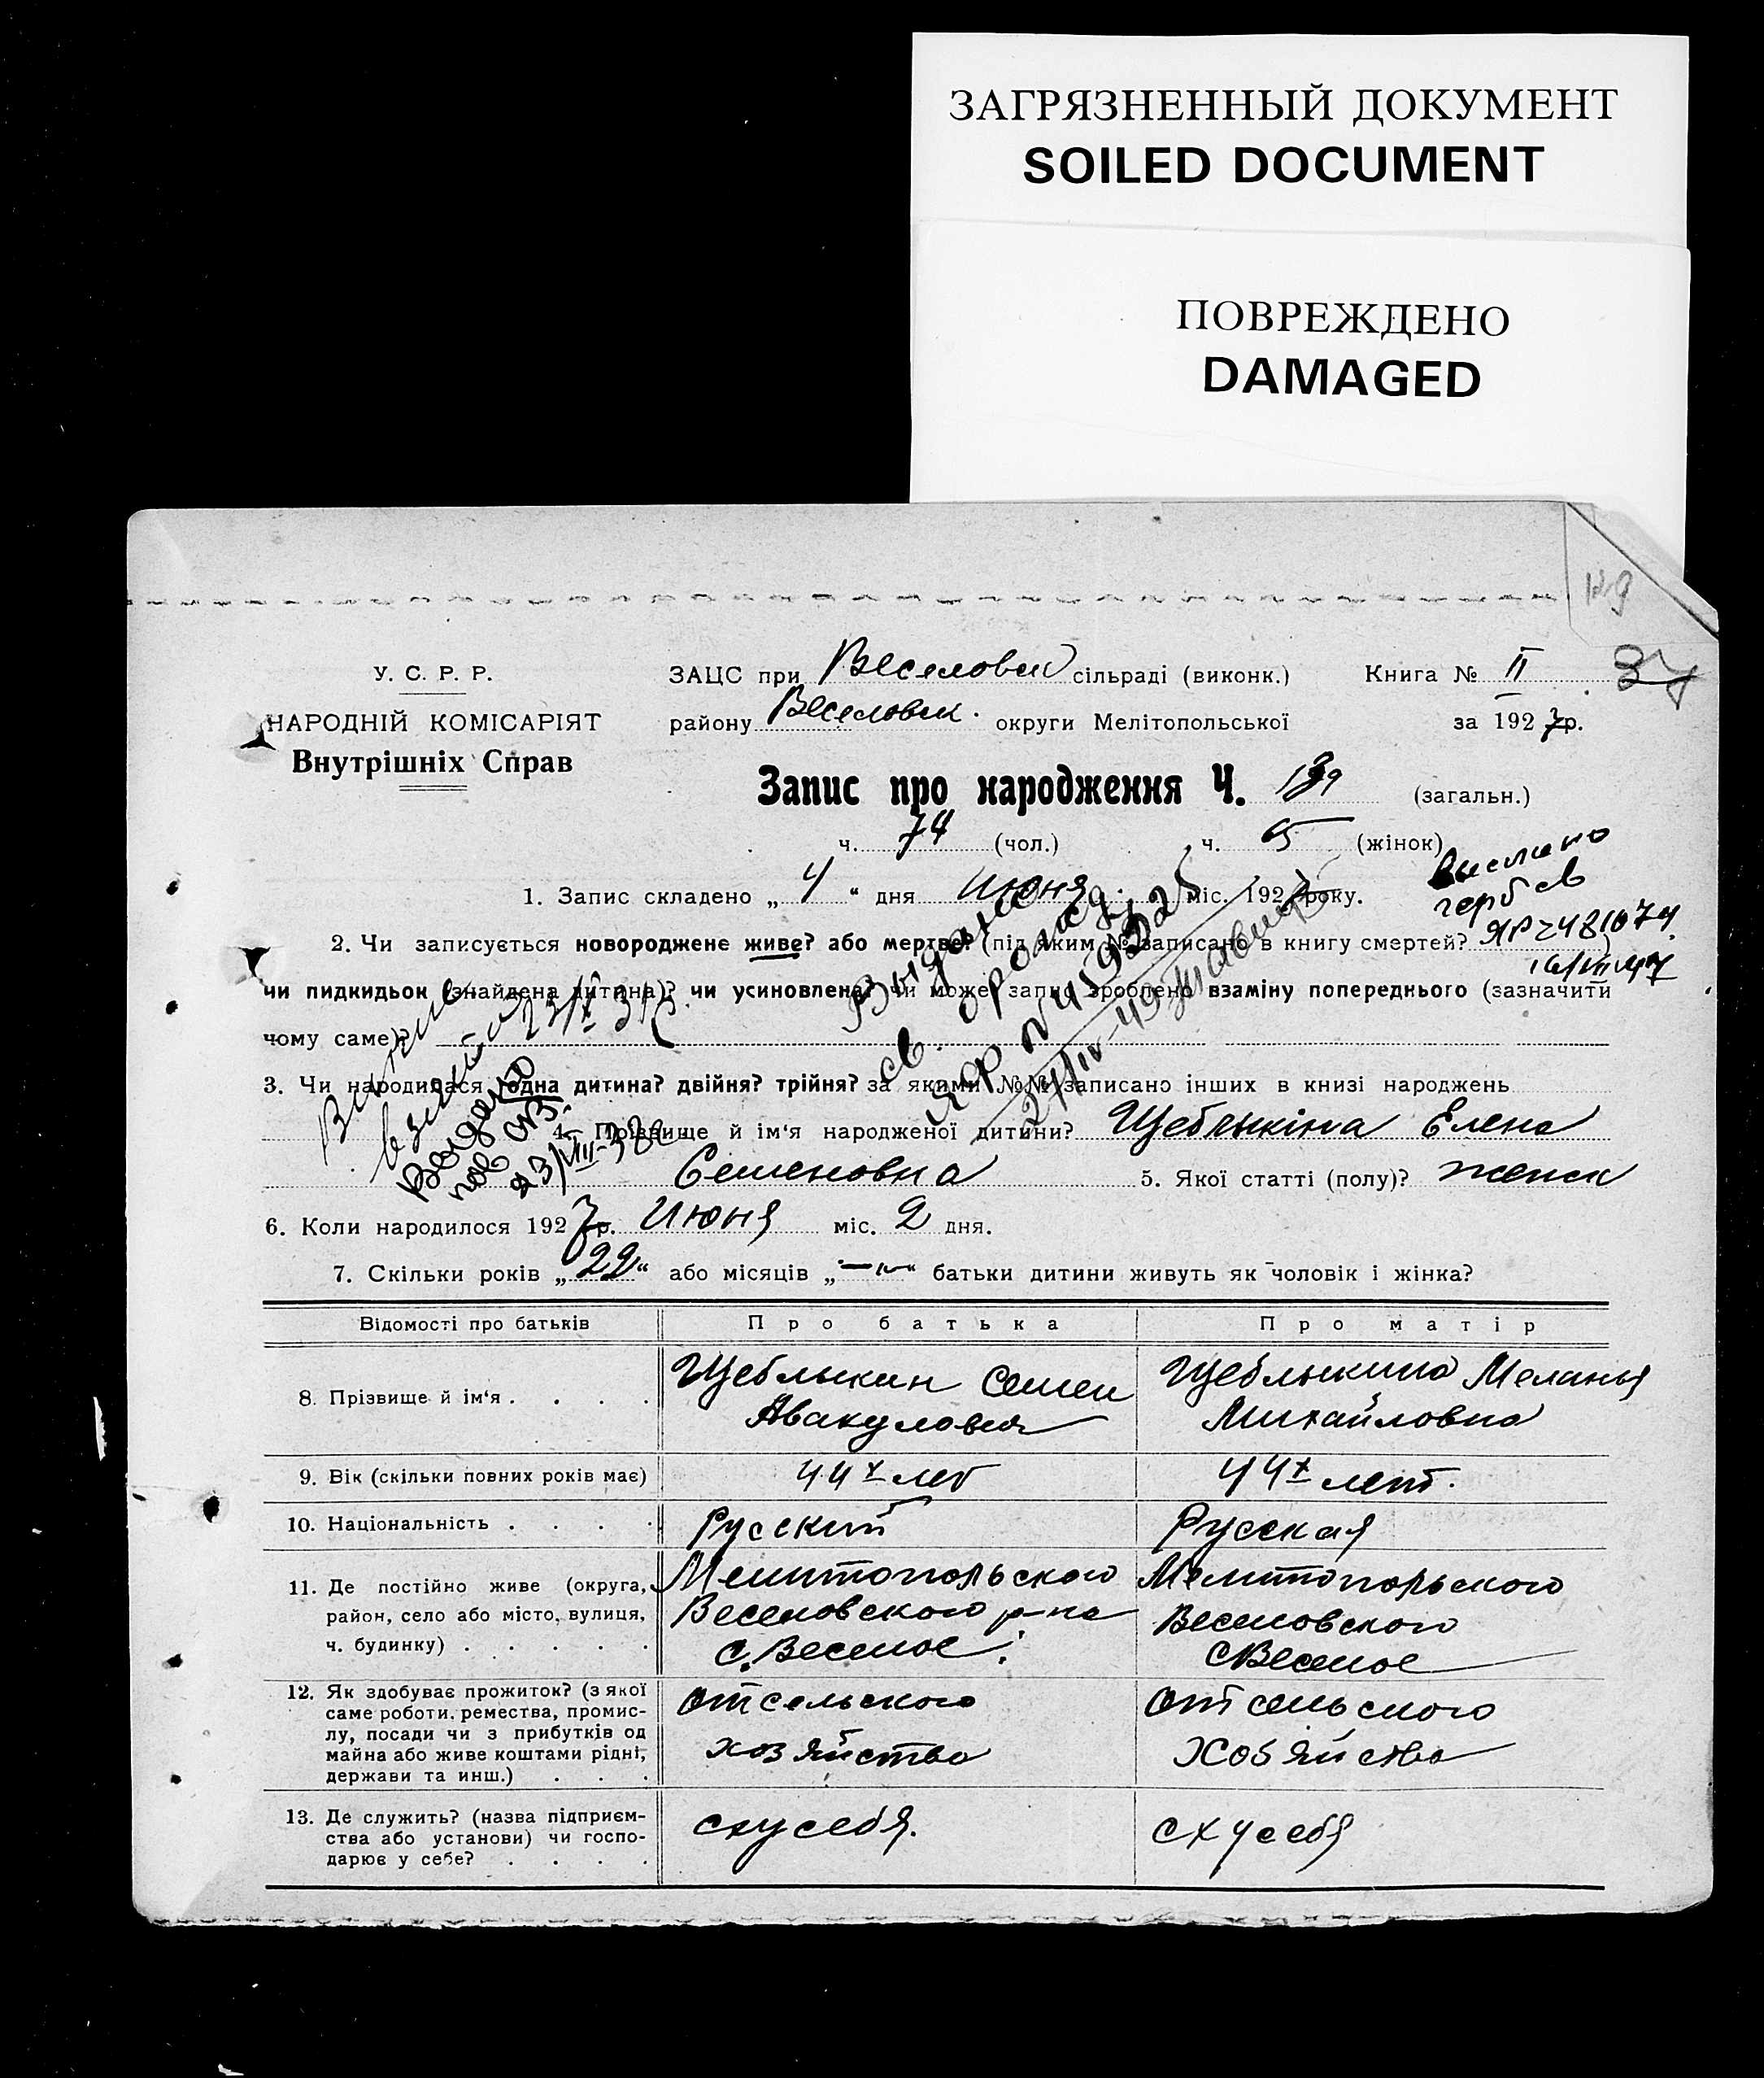 ЗАГРЯЗНЕННЫЙ ДОКУМЕНТ
SOILED DOCUMENT
ПОВРЕЖДЕНО
DAMAGED
У. С. Р. Р.
НАРОДНІЙ КОМІСАРІЯТ
Внутрішніх Справ
ЗАЦС при Веселовск сільраді (виконк.) Книга № II 37
району Веселовск. округи Мелітопольської за 1927р.
Запис про народження Ч. 139 (загальн.)
ч. 74 (чол.) ч. 65 (жінок)
1. Запис складено „ 4 “ дня Июня міс. 1927 року.
выслано
герб св
ЯР 2481074
16/VII 47
2. Чи записується новороджене живе? або мертве? (під яким № записано в книгу смертей?
чи пидкидьок (знайдена дитина)? чи усиновлена? чи може запис зроблено взаміну попереднього (зазначити
чому саме)?
Выдано
св. о рожд.
3. Чи народилася одна дитина? двійня? трійня? за якими №№ записано інших в книзі народжень
4. Прізвище й ім'я народженої дитини? Щеблыкіна Елена
Семеновна 5. Якої статті (полу)? женск
6. Коли народилося 1927р. Июня міс. 2 дня.
7. Скільки років „ 22 “ або місяців „ — “ батьки дитини живуть як чоловік і жінка?
Відомості про батьків Про батька Про матір
8. Прізвище й ім'я . . . . Щеблыкин Семен Щеблыкина Меланья
Авакумович Михайловна
9. Вік (скільки повних років має) 44х лет 44х лет.
10. Національність . . . . Русский Русская
11. Де постійно живе (округа, Мелитопольского Мелитопольского
район, село або місто, вулиця, Веселовского р-на Веселовского
ч. будинку) . . . . . с. Веселое. с Веселое
12. Як здобуває прожиток? (з якої от сельского от сельского
саме роботи, ремества, промис-
лу, посади чи з прибутків од
майна або живе коштами рідні, хозяйства хозяйства
держави та инш.) . . .
13. Де служить? (назва підприєм- сх у себя. сх у себя
ства або установи) чи госпо-
дарює у себе? . . . .